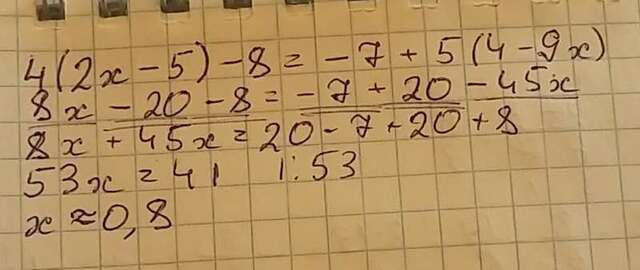 4(2x-5)-8=-7+5(4-9x)
8x-20-8=-7+20-45x
8x+45x=20-7+20+8
53x=41 |:53
x≈0,8